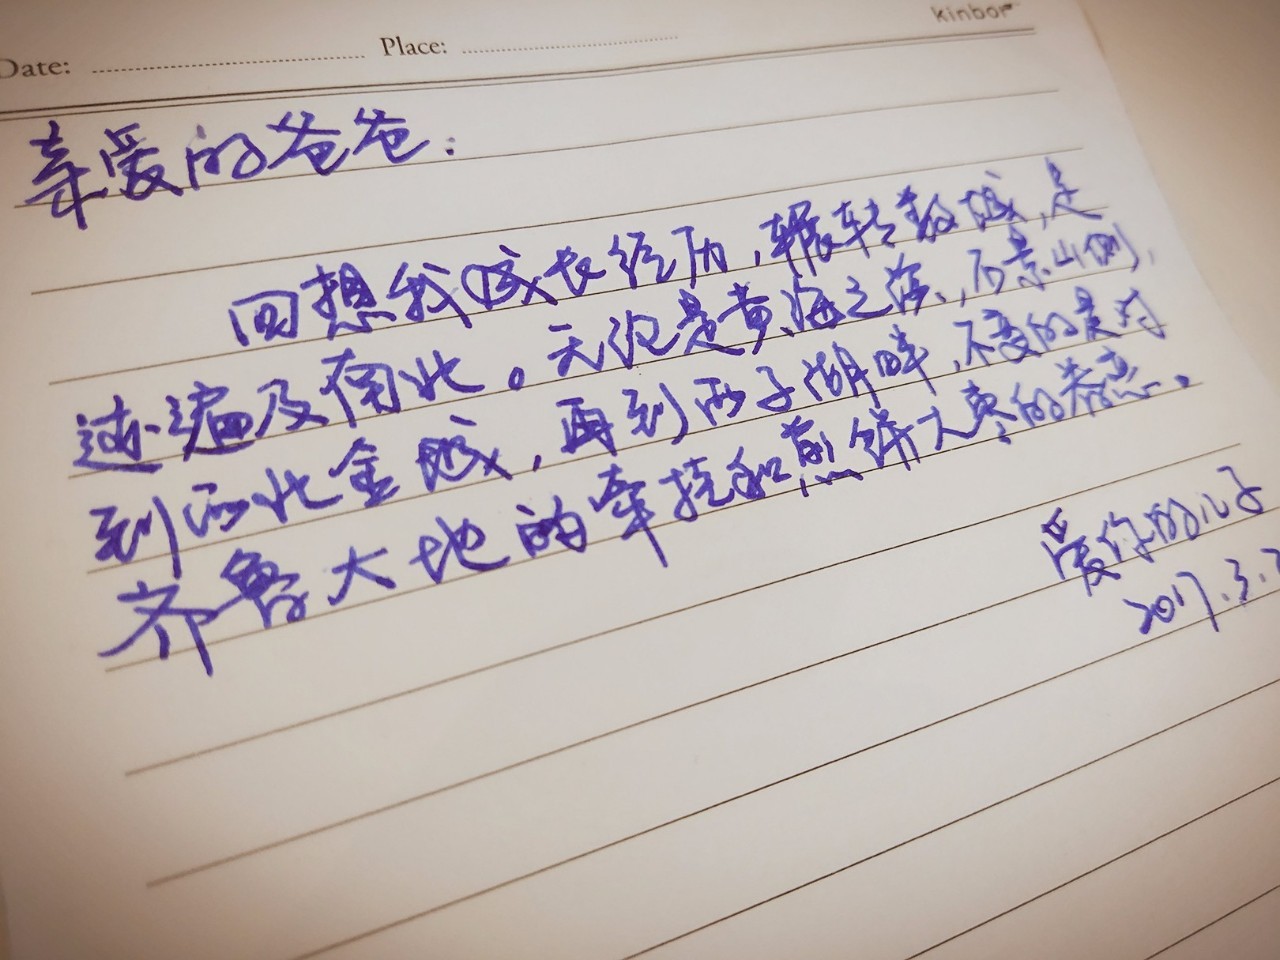 kinbor
Date: Place:
亲爱的爸爸：
回想我成长经历，辗转数城，足
迹遍及南北。无论是黄海之滨、石景山侧，
到西北金城，再到西子湖畔，不变的是对
齐鲁大地的牵挂和煎饼大枣的眷恋。
爱你的儿子
2017.3.